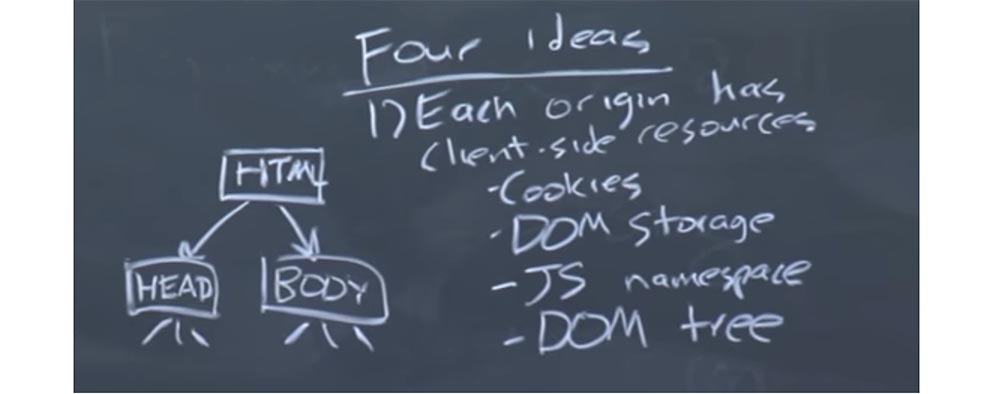 Four ideas
1) Each origin has
client-side resources
-Cookies
-DOM storage
-JS namespace
-DOM tree
HTML
HEAD
BODY